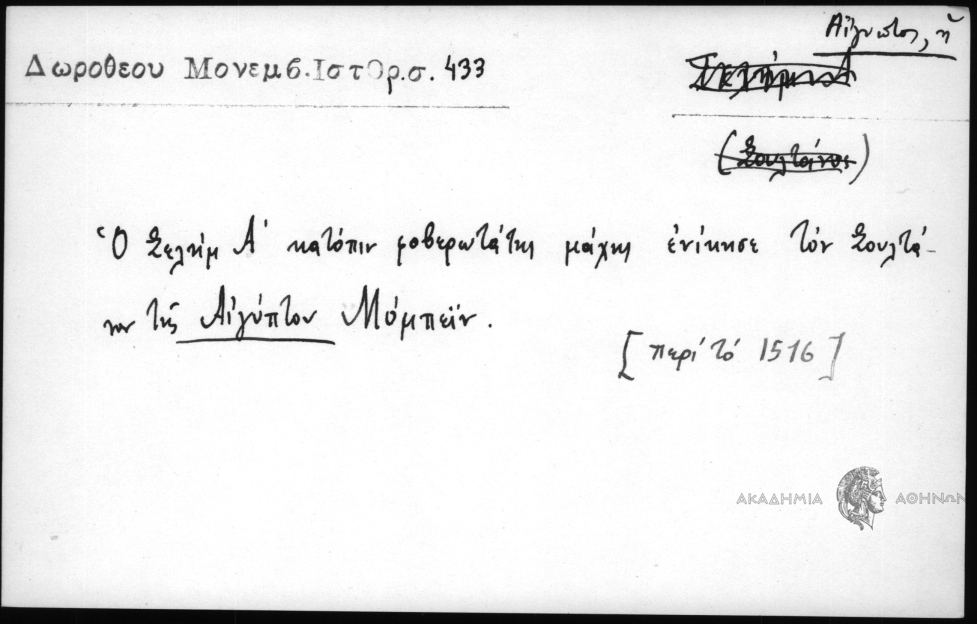 Αἴγυπτος, ἡ
Δωροθεου Μονεμβ.Ιστορ.σ. 433
Σελήμ Α
(Σουλτάνος)
Ὁ Σελήμ Α' κατόπιν φοβερωτάτης μάχης ἐνίκησε τόν Σουλτά-
νον τῆς Αἰγύπτου Μόμπεϊν.
[περί τό 1516]
ΑΚΑΔΗΜΙΑ ΑΘΗΝΩΝ